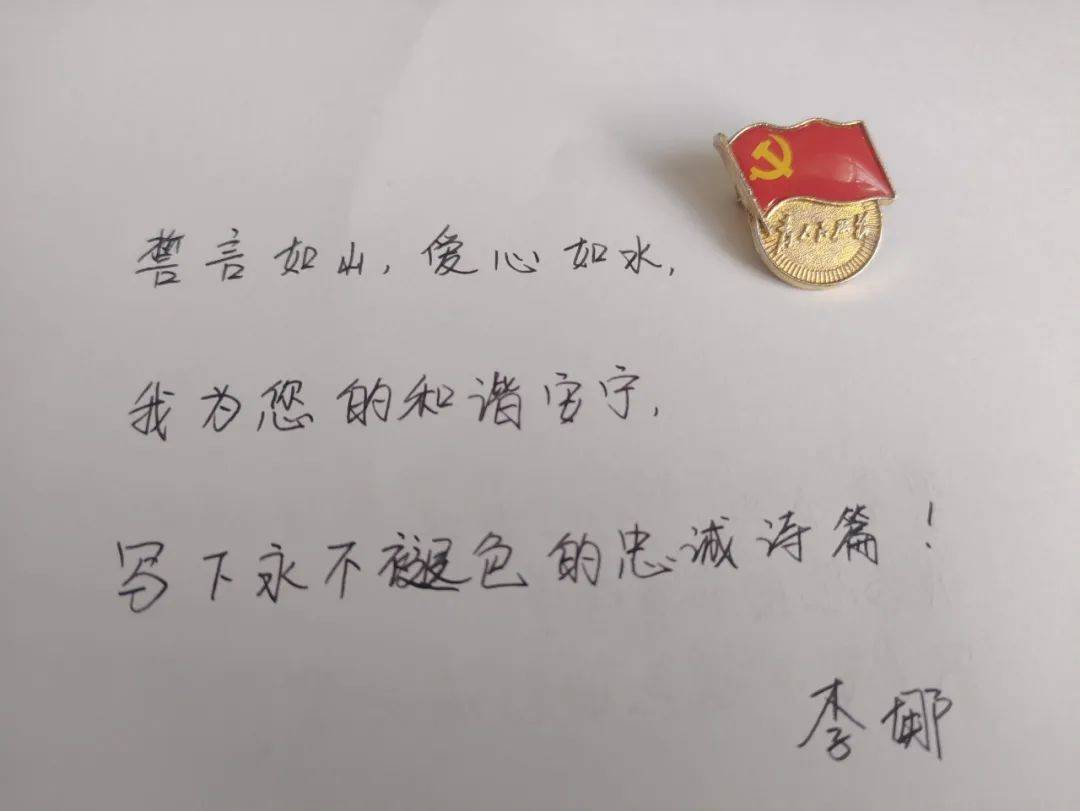 为人民服务
誓言如山,爱心如水,
我为您的和谐安宁,
写下永不褪色的忠诚诗篇!
李娜